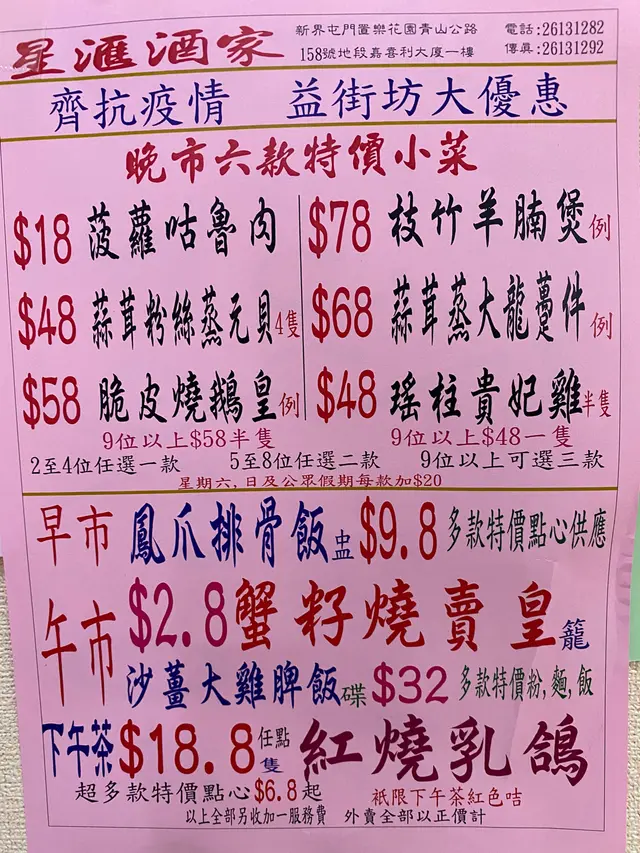 星滙酒家
新界屯門置樂花園青山公路
158號地段嘉喜利大廈一樓
電話:26131282
傳真:26131292
齊抗疫情 益街坊大優惠
晚市六款特價小菜
$18 菠蘿咕魯肉
$78 枝竹羊腩煲例
$48 蒜茸粉絲蒸元貝4隻
$68 蒜茸蒸大龍躉件例
$58 脆皮燒鵝皇例
$48 瑤柱貴妃雞半隻
9位以上$58半隻
9位以上$48一隻
2至4位任選一款 5至8位任選二款 9位以上可選三款
星期六,日及公眾假期每款加$20
早市 鳳爪排骨飯中盅 $9.8 多款特價點心供應
午市 $2.8 蟹籽燒賣皇籠
沙薑大雞脾飯碟 $32 多款特價粉,麵,飯
下午茶 $18.8隻 任點 紅燒乳鴿
超多款特價點心$6.8起
祇限下午茶紅色咭
以上全部另收加一服務費 外賣全部以正價計